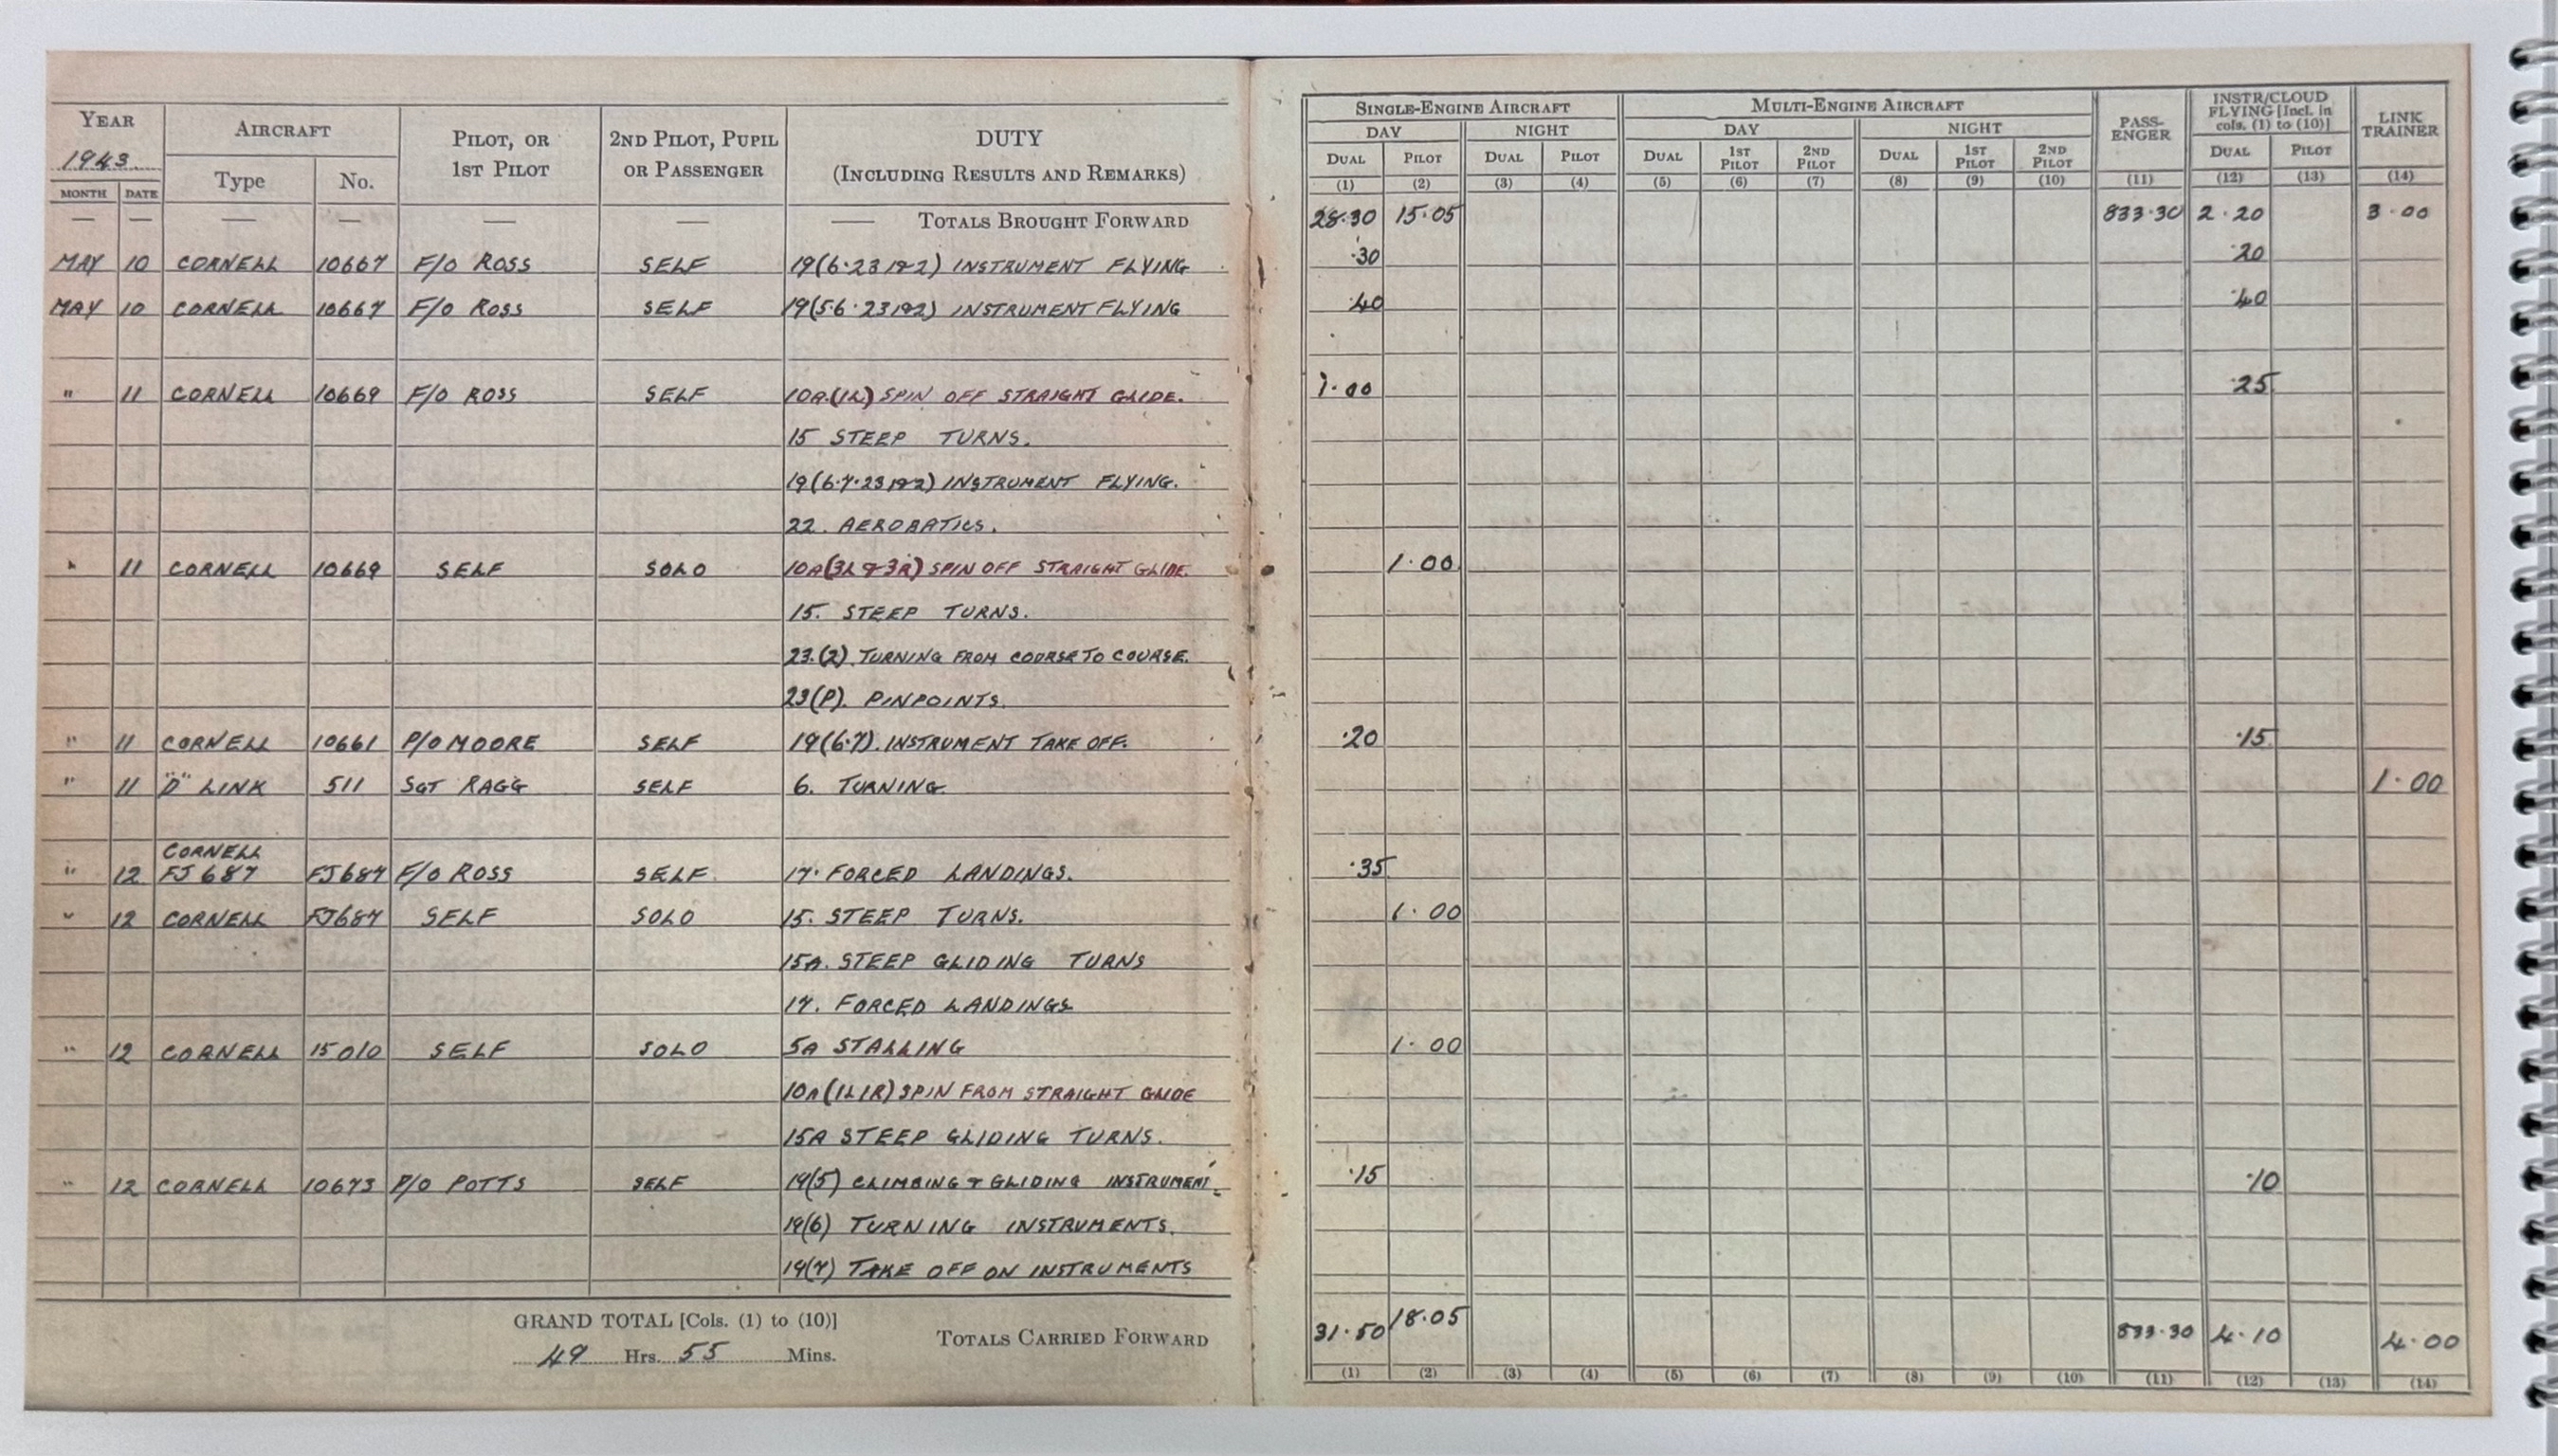 YEAR AIRCRAFT PILOT, OR 2ND PILOT, PUPIL DUTY SINGLE-ENGINE AIRCRAFT MULTI-ENGINE AIRCRAFT PASS- INSTR/CLOUD LINK
1943 Type No. 1ST PILOT OR PASSENGER (INCLUDING RESULTS AND REMARKS) DAY NIGHT DAY NIGHT ENGER FLYING [Incl. in TRAINER
cols. (1) to (10)]
MONTH DATE DUAL PILOT DUAL PILOT DUAL 1ST PILOT 2ND PILOT DUAL 1ST PILOT 2ND PILOT DUAL PILOT
(1) (2) (3) (4) (5) (6) (7) (8) (9) (10) (11) (12) (13) (14)
— — — — — — — TOTALS BROUGHT FORWARD 28.30 15.05 833.30 2.20 3.00
MAY 10 CORNELL 10667 F/O ROSS SELF 19(6.23 1&2) INSTRUMENT FLYING .30 .20
MAY 10 CORNELL 10667 F/O ROSS SELF 19(5.6.23 1&2) INSTRUMENT FLYING .40 .40
" 11 CORNELL 10669 F/O ROSS SELF 10A.(1L) SPIN OFF STRAIGHT GLIDE. 1.00 .25
15 STEEP TURNS.
19(6.7.23 1&2) INSTRUMENT FLYING.
22. AEROBATICS.
" 11 CORNELL 10669 SELF SOLO 10A(3L & 3R) SPIN OFF STRAIGHT GLIDE. 1.00
15. STEEP TURNS.
23.(2). TURNING FROM COURSE TO COURSE.
23(P). PINPOINTS.
" 11 CORNELL 10661 P/O MOORE SELF 19(6.7). INSTRUMENT TAKE OFF. .20 .15
" 11 "D" LINK 511 SGT RAGG SELF 6. TURNING 1.00
CORNELL
" 12 FJ687 FJ687 F/O ROSS SELF. 17. FORCED LANDINGS. .35
" 12 CORNELL FJ687 SELF SOLO 15. STEEP TURNS. 1.00
15A. STEEP GLIDING TURNS
17. FORCED LANDINGS
" 12 CORNELL 15010 SELF SOLO 5A STALLING 1.00
10A(1L1R) SPIN FROM STRAIGHT GLIDE
15A STEEP GLIDING TURNS.
" 12 CORNELL 10673 P/O POTTS SELF 19(5) CLIMBING & GLIDING INSTRUMENT. .15 .10
19(6) TURNING INSTRUMENTS.
19(7) TAKE OFF ON INSTRUMENTS
GRAND TOTAL [Cols. (1) to (10)] TOTALS CARRIED FORWARD 31.50 18.05 833.30 4.10 4.00
49 Hrs. 55 Mins.
(1) (2) (3) (4) (5) (6) (7) (8) (9) (10) (11) (12) (13) (14)